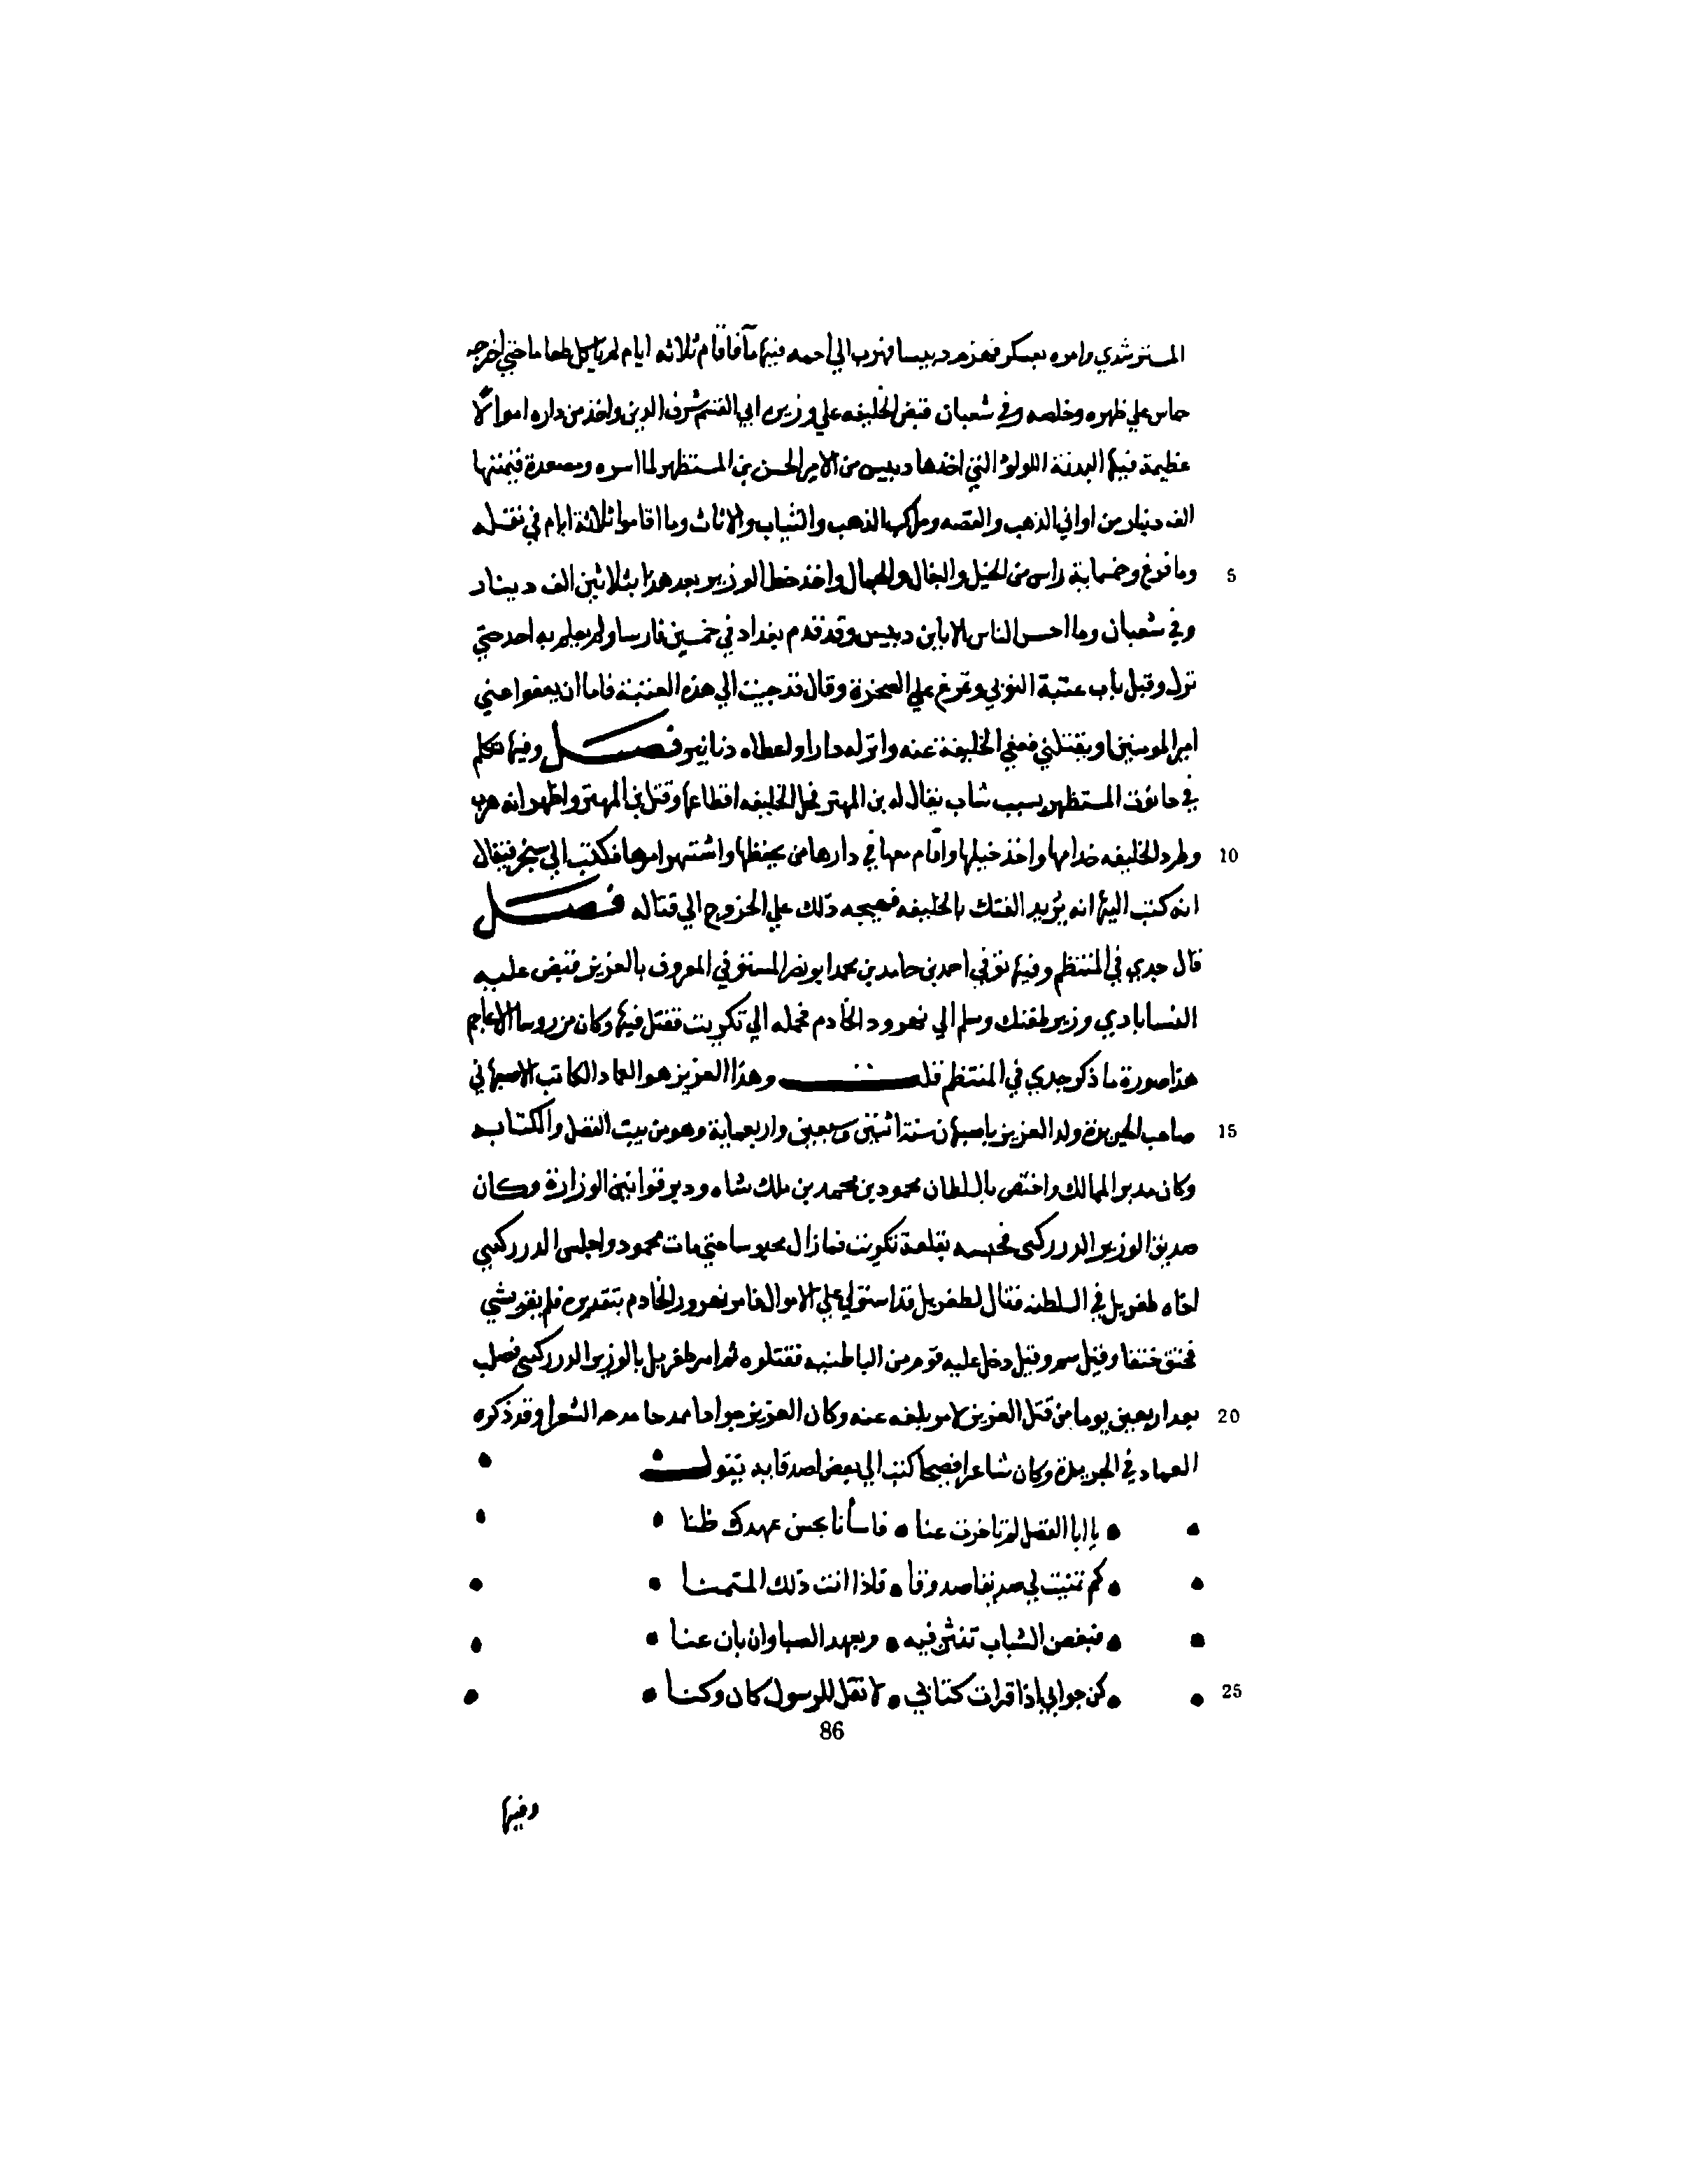 المسترشدي وامره بعسكر فهزم دبيسا فهرب الي احمه فيها مآ فاقام ثلاثه ايام لم ياكل طعاما حتي اخرجه
حماس علي ظهره وخلصه وفي شعبان قبض الخليفه علي وزيره ابي القسم شرف الدين واخذ من داره اموالا
عظيمة فيها البدنة اللولؤ التي اخذها دبيس من الامير الحسن بن المستظهر لما اسره ومصعدة قيمتها
الف دينار من اواني الذهب والفضه ومراكب الذهب والثياب والاثاث وما اقاموا ثلاثة ايام في نقله
وما فرغ وخمسماية راس من الخيل والبغال والجمال واخذ خط الوزير بعد هذا بثلاثين الف دينار
وفي شعبان وما احس الناس الا بابن دبيس وقد قدم بغداد في خمسين فارسا ولم يعلم به احد حتي
نزل وقبل باب عتبة النوبي وتمرغ علي الصخرة وقال قد جيت الي هذه العتبة فاما ان يعفوا عني
امير المومنين او يقتلني فعفي الخليفة عنه وانزله دارا واعطاه دنانير فصل وفيها تكلم
في خاتون المستظهر بسبب شاب يقال له بن المهتر فحل الخليفه اقطاعها وقتل بن المهتر واظهر انه هرب
وطرد الخليفه خدامها واخذ خيلها واقام معها في دارها من يحفظها واشتهر امرها فكتب الي سنجر فيقال
انه كتب اليها انه يريد الفتك بالخليفه فهيجه ذلك علي الخروج الي قتاله فصل
قال جدي في المنتظم وفيها توفي احمد بن حامد بن محمد ابو نصر المستوفي المعروف بالعزيز قبض عليه
النساباذي وزير طغتك وسلم الي بهرود الخادم فحمله الي تكريت فقتل فيها وكان من روسا الاعاجم
هذا صورة ما ذكر جدي في المنتظم قلت وهذا العزيز هو العماد الكاتب الاصبهاني
صاحب الخريدة ولد العزيز باصبهان سنة اثنين وسبعين واربعماية وهو من بيت الفضل والكتابه
وكان مدبر الممالك واختص بالسلطان محمود بن محمد بن ملك شاه ودبر قوانين الوزارة وكان
صديق الوزير الدركسى فحبسه بقلعة تكريت فما زال محبوسا حتي مات محمود واجلس الدركسي
اخاه طغريل في السلطنه فقال لطغريل قد استولي علي الاموال فامر بهرود الخادم بتقديره فلم يقر بشي
فخنق خنقا وقيل سم وقيل دخل عليه قوم من الباطنيه فقتلوه ثم امر طغريل بالوزير الدركسي فصلب
بعد اربعين يوما من قتل العزيز لامر بلغه عنه وكان العزيز جوادا ممدحا مدحه الشعرا وقد ذكره
العماد في الخريدة وكان شاعرا فصيحا كتب الي بعض اصدقايه يقول
يا ابا الفضل لم تاخرت عنا • فاسأنا بحسن عهدك ظنا
كم تمنيت لي صديقا صدوقا • فاذا انت ذلك المتمنا
فبغصن الشباب تنثني فيه • وبعهد الصبا وان بان عنا
كن جوابي اذا قرات كتابي • لا تقل للرسول كان وكنا
5
10
15
20
25
86
وفيها